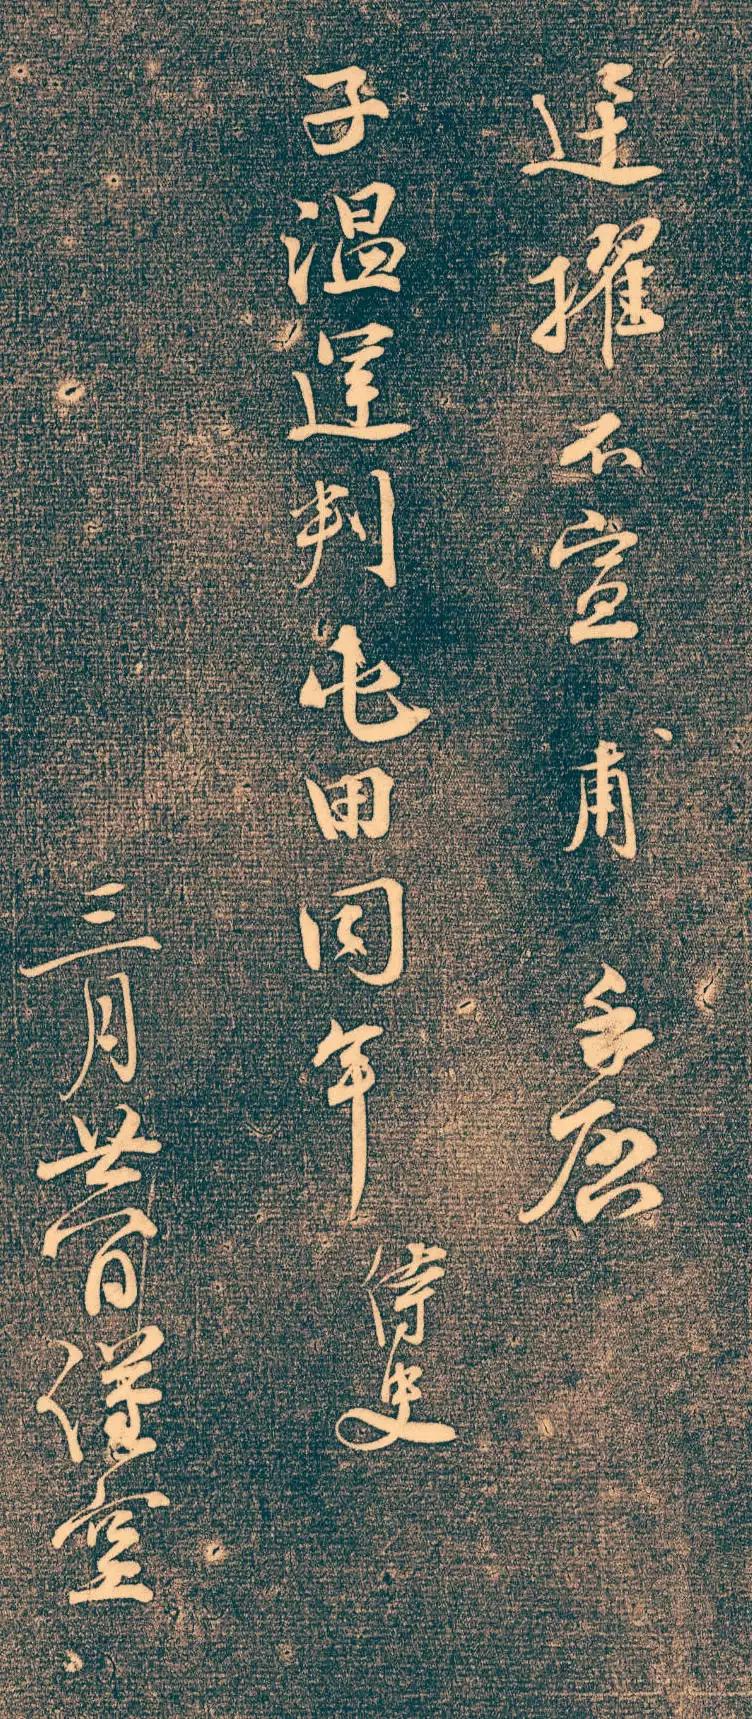 廷擢不宣 甫 手启
子温運判屯田同年 侍史
三月廿一日謹空